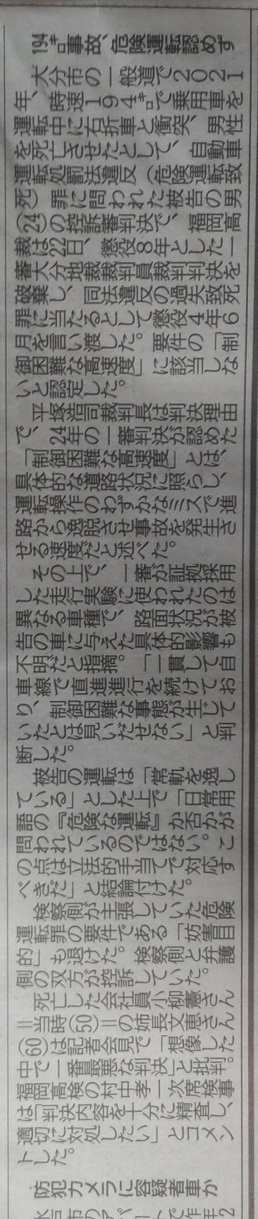 194㌔事故、危険運転認めず
大分市の一般道で2021
年、時速194㌔で乗用車を
運転中に右折車と衝突、男性
を死亡させたとして、自動車
運転処罰法違反（危険運転致
死）罪に問われた被告の男
(24)の控訴審判決で、福岡高
裁は22日、懲役8年とした一
審大分地裁裁判員裁判判決を
破棄し、同法違反の過失致死
罪に当たるとして懲役4年6
月を言い渡した。要件の「制
御困難な高速度」に該当しな
いと認定した。
平塚浩司裁判長は判決理由
で、24年の一審判決が認めた
「制御困難な高速度」とは、
具体的な道路状況に照らし、
運転操作のわずかなミスで進
路から逸脱させ事故を発生さ
せる速度だと述べた。
その上で、一審が証拠採用
した走行実験に使われたのは
異なる車種で、路面状況が被
告の車に与えた具体的影響も
不明だと指摘。「一貫して自
車線で直進進行を続けてお
り、制御困難な事態が生じて
いたとは見いだせない」と判
断した。
被告の運転は「常軌を逸し
ている」とした上で「日常用
語の『危険な運転』か否かが
問われているのではない。こ
の点は立法的手当てで対応す
べきだ」と結論付けた。
検察側が主張していた危険
運転罪の要件である「妨害目
的」も退けた。検察側と弁護
側の双方が控訴していた。
死亡した会社員小柳憲さん
＝当時(50)＝の姉長文恵さん
(60)は記者会見で「想像した
中で一番最悪な判決」と批判。
福岡高検の村中孝一次席検事
は「判決内容を十分に精査し、
適切に対処したい」とコメン
トした。
防犯カメラに容疑者車か
水戸市のアパートで昨年2